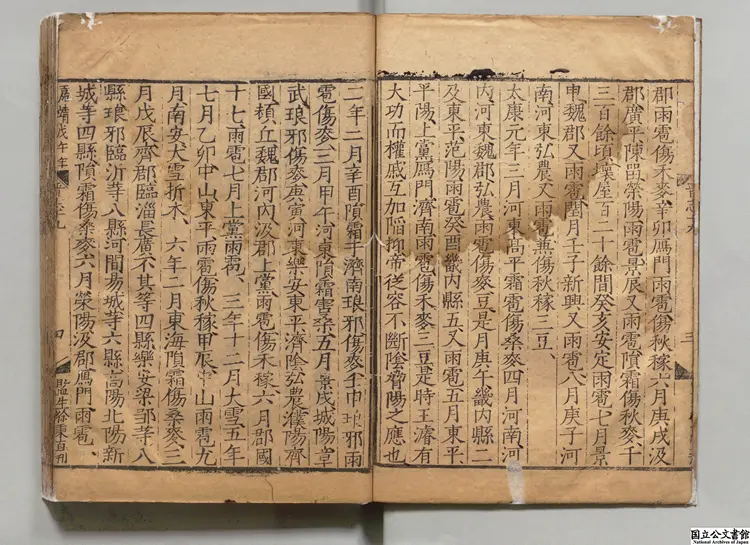 郡雨雹傷禾麥辛卯鴈門雨雹傷秋稼六月庚戌汲
郡廣平陳留滎陽雨雹景辰又雨雹隕霜傷秋麥千
三百餘頃壞屋百二十餘間癸亥安定雨雹七月景
申魏郡又雨雹閏月壬子新興又雨雹八月庚子河
南河東弘農又雨雹兼傷秋稼三豆
太康元年三月河東高平霜雹傷桑麥四月河南河
內河東魏郡弘農雨雹傷麥豆是月庚午畿內縣二
及東平范陽雨雹癸酉畿內縣五又雨雹五月東平
平陽上黨鴈門濟南雨雹傷禾麥三豆是時王濬有
大功而權戚互加陷抑帝從容不斷陰脅陽之應也
二年二月辛酉隕霜于濟南琅邪傷麥壬申琅邪雨
雹傷麥三月甲午河東隕霜害桑五月景戌城陽章
武琅邪傷麥庚寅河東樂安東平濟陰弘農濮陽齊
國頓丘魏郡河內汲郡上黨雨雹傷禾稼六月郡國
十七雨雹七月上黨雨雹 三年十二月大雪五年
七月乙卯中山東平雨雹傷秋稼甲辰中山雨雹九
月南安大雪折木 六年二月東海隕霜傷桑麥三
月戊辰齊郡臨淄長廣不其等四縣樂安梁鄒等八
縣琅邪臨沂等八縣河間易城等六縣高陽北陽新
城等四縣隕霜傷桑麥六月滎陽汲郡鴈門雨雹
嘉靖戊午年 志九 四 監生徐秉直刊
国立公文書館
National Archives of Japan